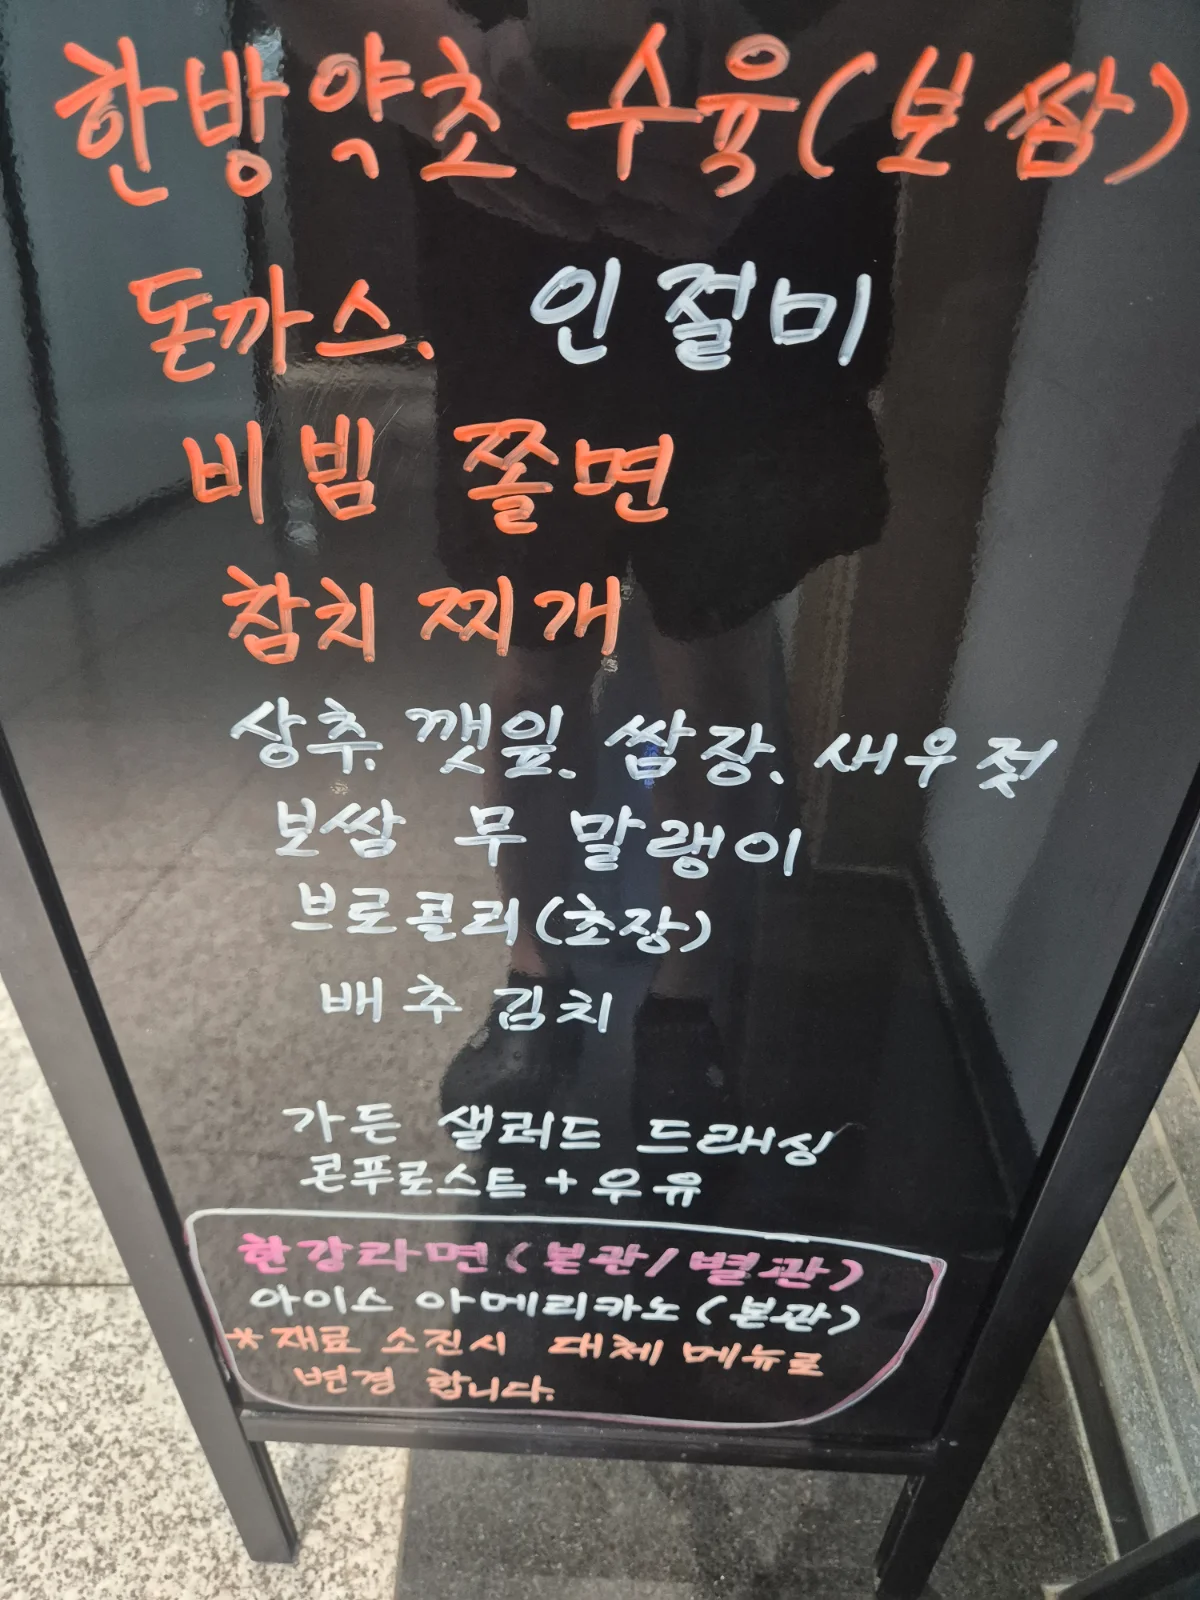 한방약초 수육(보쌈)
돈까스. 인절미
비빔 쫄면
참치 찌개
상추. 깻잎. 쌈장. 새우젓
보쌈 무 말랭이
브로콜리(초장)
배추 김치
가든 샐러드 드래싱
콘푸로스트 + 우유
한강라면(본관/별관)
아이스 아메리카노(본관)
*재료 소진시 대체 메뉴로
변경 합니다.